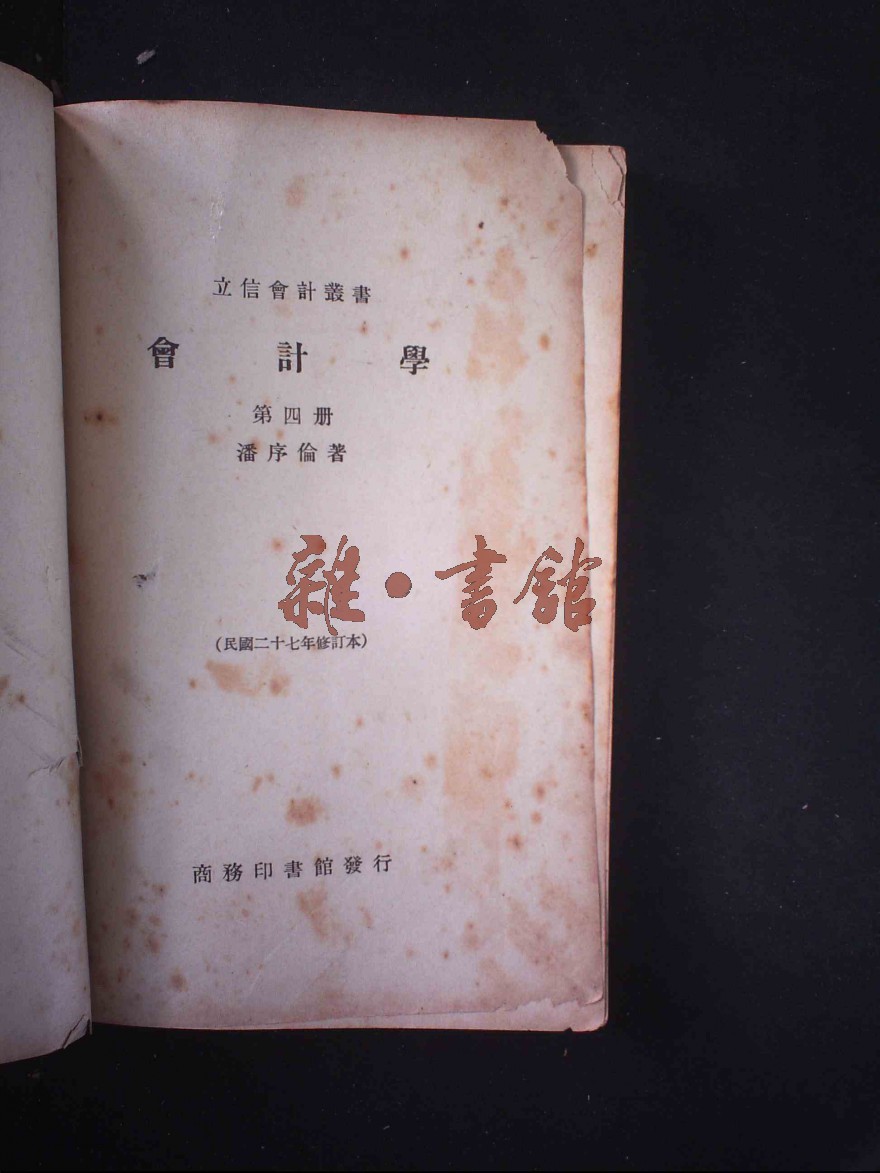 立信會計叢書
會計學
第四册
潘序倫著
雜·書館
(民國二十七年修訂本)
商務印書館發行